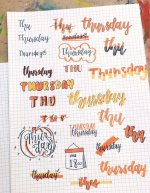 Thu
Thu
Thursday
Thursday
thu
Thursday
Thursdays
Thursday
thu
Thursday
Thursday
THURSDAY
Thursday
THU
thu
THU
Thursday
thursday
Thursday
thu
Thursday
18
Thursday
thu
Thursday
Thursday